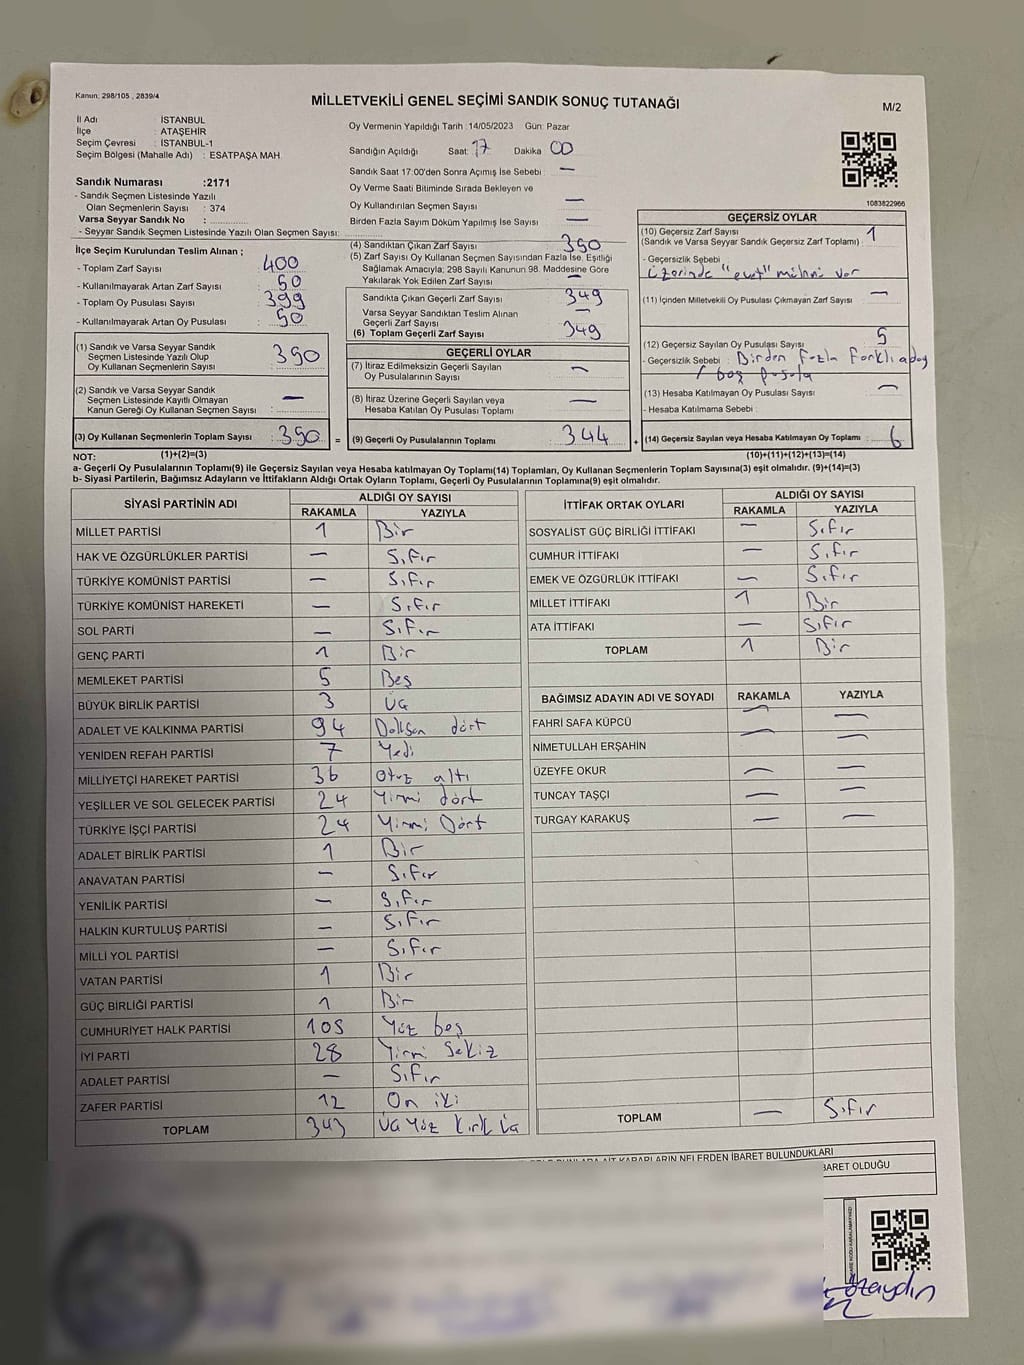 Kanun: 298/105 , 2839/4
MİLLETVEKİLİ GENEL SEÇİMİ SANDIK SONUÇ TUTANAĞI
M/2
İl Adı İSTANBUL
İlçe : ATAŞEHİR
Seçim Çevresi : İSTANBUL-1
Seçim Bölgesi (Mahalle Adı) : ESATPAŞA MAH.
Sandık Numarası :2171
- Sandık Seçmen Listesinde Yazılı
Olan Seçmenlerin Sayısı : 374
Varsa Seyyar Sandık No :
- Seyyar Sandık Seçmen Listesinde Yazılı Olan Seçmen Sayısı:
Oy Vermenin Yapıldığı Tarih :14/05/2023 Gün: Pazar
Sandığın Açıldığı Saat: 17 Dakika 00
Sandık Saat 17:00'den Sonra Açımış İse Sebebi : —
Oy Verme Saati Bitiminde Sırada Bekleyen ve
Oy Kullandırılan Seçmen Sayısı —
Birden Fazla Sayım Döküm Yapılmış İse Sayısı —
1083822966
İlçe Seçim Kurulundan Teslim Alınan ;
- Toplam Zarf Sayısı : 400
- Kullanılmayarak Artan Zarf Sayısı : 50
- Toplam Oy Pusulası Sayısı : 399
- Kullanılmayarak Artan Oy Pusulası : 50
(1) Sandık ve Varsa Seyyar Sandık
Seçmen Listesinde Yazılı Olup
Oy Kullanan Seçmenlerin Sayısı : 350
(2) Sandık ve Varsa Seyyar Sandık
Seçmen Listesinde Kayıtlı Olmayan
Kanun Gereği Oy Kullanan Seçmen Sayısı : —
(3) Oy Kullanan Seçmenlerin Toplam Sayısı : 350
(4) Sandıktan Çıkan Zarf Sayısı 350
(5) Zarf Sayısı Oy Kullanan Seçmen Sayısından Fazla İse, Eşitliği
Sağlamak Amacıyla; 298 Sayılı Kanunun 98. Maddesine Göre
Yakılarak Yok Edilen Zarf Sayısı —
Sandıkta Çıkan Geçerli Zarf Sayısı : 349
Varsa Seyyar Sandıktan Teslim Alınan
Geçerli Zarf Sayısı : —
(6) Toplam Geçerli Zarf Sayısı : 349
GEÇERLİ OYLAR
(7) İtiraz Edilmeksizin Geçerli Sayılan
Oy Pusulalarının Sayısı : —
(8) İtiraz Üzerine Geçerli Sayılan veya
Hesaba Katılan Oy Pusulası Toplamı : —
= (9) Geçerli Oy Pusulalarının Toplamı : 344
GEÇERSİZ OYLAR
(10) Geçersiz Zarf Sayısı
(Sandık ve Varsa Seyyar Sandık Geçersiz Zarf Toplamı) : 1
- Geçersizlik Sebebi :
üzerinde "evet" mührü var
(11) İçinden Milletvekili Oy Pusulası Çıkmayan Zarf Sayısı : —
(12) Geçersiz Sayılan Oy Pusulası Sayısı : 5
- Geçersizlik Sebebi : Birden fazla farklı aday
/ boş pusula
(13) Hesaba Katılmayan Oy Pusulası Sayısı : —
- Hesaba Katılmama Sebebi :
+ (14) Geçersiz Sayılan veya Hesaba Katılmayan Oy Toplamı : 6
NOT: (1)+(2)=(3) (10)+(11)+(12)+(13)=(14)
a- Geçerli Oy Pusulalarının Toplamı(9) ile Geçersiz Sayılan veya Hesaba katılmayan Oy Toplamı(14) Toplamları, Oy Kullanan Seçmenlerin Toplam Sayısına(3) eşit olmalıdır. (9)+(14)=(3)
b- Siyasi Partilerin, Bağımsız Adayların ve İttifakların Aldığı Ortak Oyların Toplamı, Geçerli Oy Pusulalarının Toplamına(9) eşit olmalıdır.
SİYASİ PARTİNİN ADI ALDIĞI OY SAYISI
RAKAMLA YAZIYLA
MİLLET PARTİSİ 1 Bir
HAK VE ÖZGÜRLÜKLER PARTİSİ — Sıfır
TÜRKİYE KOMÜNİST PARTİSİ — Sıfır
TÜRKİYE KOMÜNİST HAREKETİ — Sıfır
SOL PARTİ — Sıfır
GENÇ PARTİ 1 Bir
MEMLEKET PARTİSİ 5 Beş
BÜYÜK BİRLİK PARTİSİ 3 Üç
ADALET VE KALKINMA PARTİSİ 94 Doksan dört
YENİDEN REFAH PARTİSİ 7 Yedi
MİLLİYETÇİ HAREKET PARTİSİ 36 Otuz altı
YEŞİLLER VE SOL GELECEK PARTİSİ 24 Yirmi dört
TÜRKİYE İŞÇİ PARTİSİ 24 Yirmi Dört
ADALET BİRLİK PARTİSİ 1 Bir
ANAVATAN PARTİSİ — Sıfır
YENİLİK PARTİSİ — Sıfır
HALKIN KURTULUŞ PARTİSİ — Sıfır
MİLLİ YOL PARTİSİ — Sıfır
VATAN PARTİSİ 1 Bir
GÜÇ BİRLİĞİ PARTİSİ 1 Bir
CUMHURİYET HALK PARTİSİ 105 Yüz beş
İYİ PARTİ 28 Yirmi Sekiz
ADALET PARTİSİ — Sıfır
ZAFER PARTİSİ 12 On iki
TOPLAM 343 Üç Yüz Kırk Üç
İTTİFAK ORTAK OYLARI ALDIĞI OY SAYISI
RAKAMLA YAZIYLA
SOSYALİST GÜÇ BİRLİĞİ İTTİFAKI — Sıfır
CUMHUR İTTİFAKI — Sıfır
EMEK VE ÖZGÜRLÜK İTTİFAKI — Sıfır
MİLLET İTTİFAKI 1 Bir
ATA İTTİFAKI — Sıfır
TOPLAM 1 Bir
BAĞIMSIZ ADAYIN ADI VE SOYADI RAKAMLA YAZIYLA
FAHRİ SAFA KÜPCÜ — —
NİMETULLAH ERŞAHİN — —
ÜZEYFE OKUR — —
TUNCAY TAŞÇI — —
TURGAY KARAKUŞ — —
TOPLAM — Sıfır
KARARLARIN NELERDEN İBARET BULUNDUKLARI
BARET OLDUĞU
özaydın